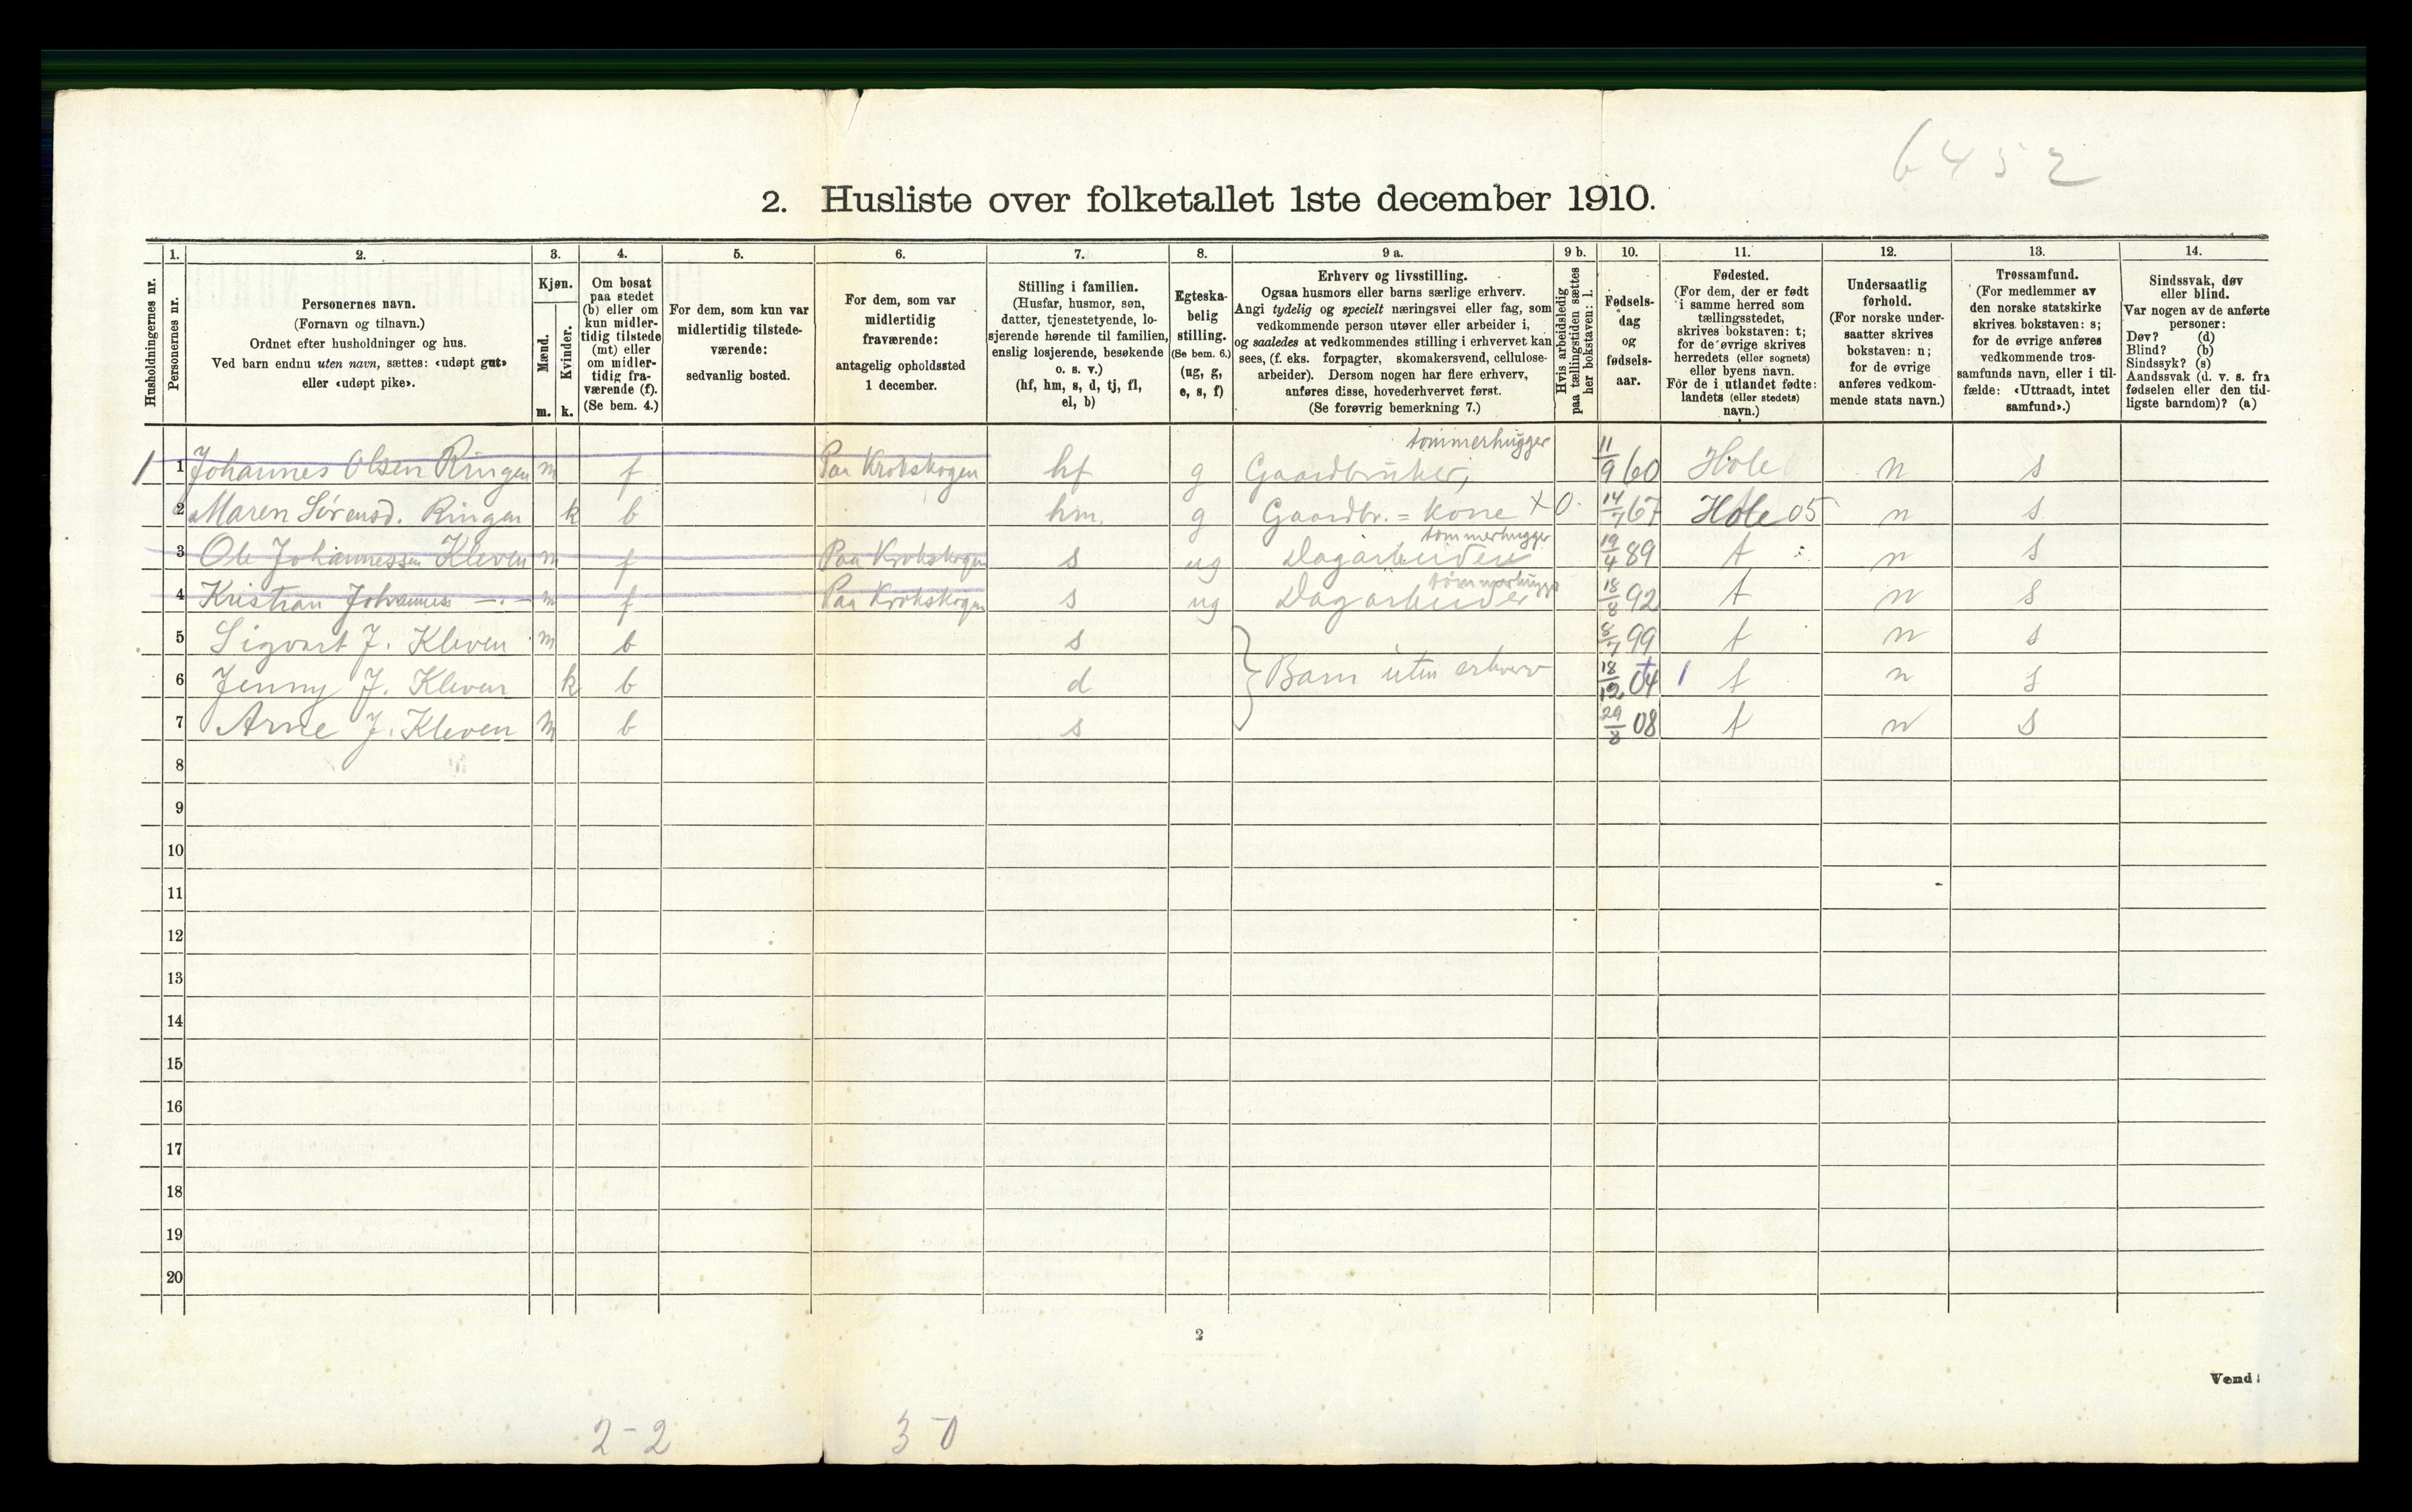 6452
2. Husliste over folketallet 1ste december 1910.
Husholdningernes nr.
1.
Personernes nr.
2.
Personernes navn.
(Fornavn og tilnavn.)
Ordnet efter husholdninger og hus.
Ved barn endnu uten navn, sættes: «udøpt gut»
eller «udøpt pike».
3.
Kjøn.
Mænd.
m.
Kvinder.
k.
4.
Om bosat
paa stedet
(b) eller om
kun midler-
tidig tilstede
(mt) eller
om midler-
tidig fra-
værende (f).
(Se bem. 4.)
5.
For dem, som kun var
midlertidig tilstede-
værende:
sedvanlig bosted.
6.
For dem, som var
midlertidig
fraværende:
antagelig opholdssted
1 december.
7.
Stilling i familien.
(Husfar, husmor, søn,
datter, tjenestetyende, lo-
sjerende hørende til familien,
enslig losjerende, besøkende
o. s. v.)
(hf, hm, s, d, tj, fl,
el, b)
8.
Egteska-
belig
stilling.
(Se bem. 6.)
(ug, g,
e, s, f)
9 a.
Erhverv og livsstilling.
Ogsaa husmors eller barns særlige erhverv.
Angi tydelig og specielt næringsvei eller fag, som
vedkommende person utøver eller arbeider i,
og saaledes at vedkommendes stilling i erhvervet kan
sees, (f. eks. forpagter, skomakersvend, cellulose-
arbeider). Dersom nogen har flere erhverv,
anføres disse, hovederhvervet først.
(Se forøvrig bemerkning 7.)
9 b.
Hvis arbeidsledig
paa tællingstiden sættes
her bokstaven: l.
10.
Fødsels-
dag
og
fødsels-
aar.
11.
Fødested.
(For dem, der er født
i samme herred som
tællingsstedet,
skrives bokstaven: t;
for de øvrige skrives
herredets (eller sognets)
eller byens navn.
For de i utlandet fødte:
landets (eller stedets)
navn.)
12.
Undersaatlig
forhold.
(For norske under-
saatter skrives
bokstaven: n;
for de øvrige
anføres vedkom-
mende stats navn.)
13.
Trossamfund.
(For medlemmer av
den norske statskirke
skrives bokstaven: s;
for de øvrige anføres
vedkommende tros-
samfunds navn, eller i til-
fælde: «Uttraadt, intet
samfund».)
14.
Sindssvak, døv
eller blind.
Var nogen av de anførte
personer:
Døv? (d)
Blind? (b)
Sindssyk? (s)
Aandssvak (d. v. s. fra
fødselen eller den tid-
ligste barndom)? (a)
1 1 Johannes Olsen Ringen m f Paa Krokskogen hf g Gaardbruker, tømmerhugger 11/9 60 Hole n s
2 Maren Sørensd. Ringen k b hm. g Gaardbr. = kone x 0. 14/7 67 Hole 05 n s
3 Ole Johannessen Kleven m f Paa Krokskogen s ug Dagarbeider tømmerhugger 19/4 89 t n s
4 Kristian Johannes —"— m f Paa Krokskogen s ug Dagarbeider tømmerhugger 18/8 92 t n s
5 Sigvart J. Kleven m b s 8/7 99 t n s
6 Jenny J. Kleven k b d } Barn uten erhverv 18/12 04 1 t n s
7 Arne J. Kleven m b s 29/8 08 t n s
8
9
10
11
12
13
14
15
16
17
18
19
20
2
Vend!
2-2 3 0